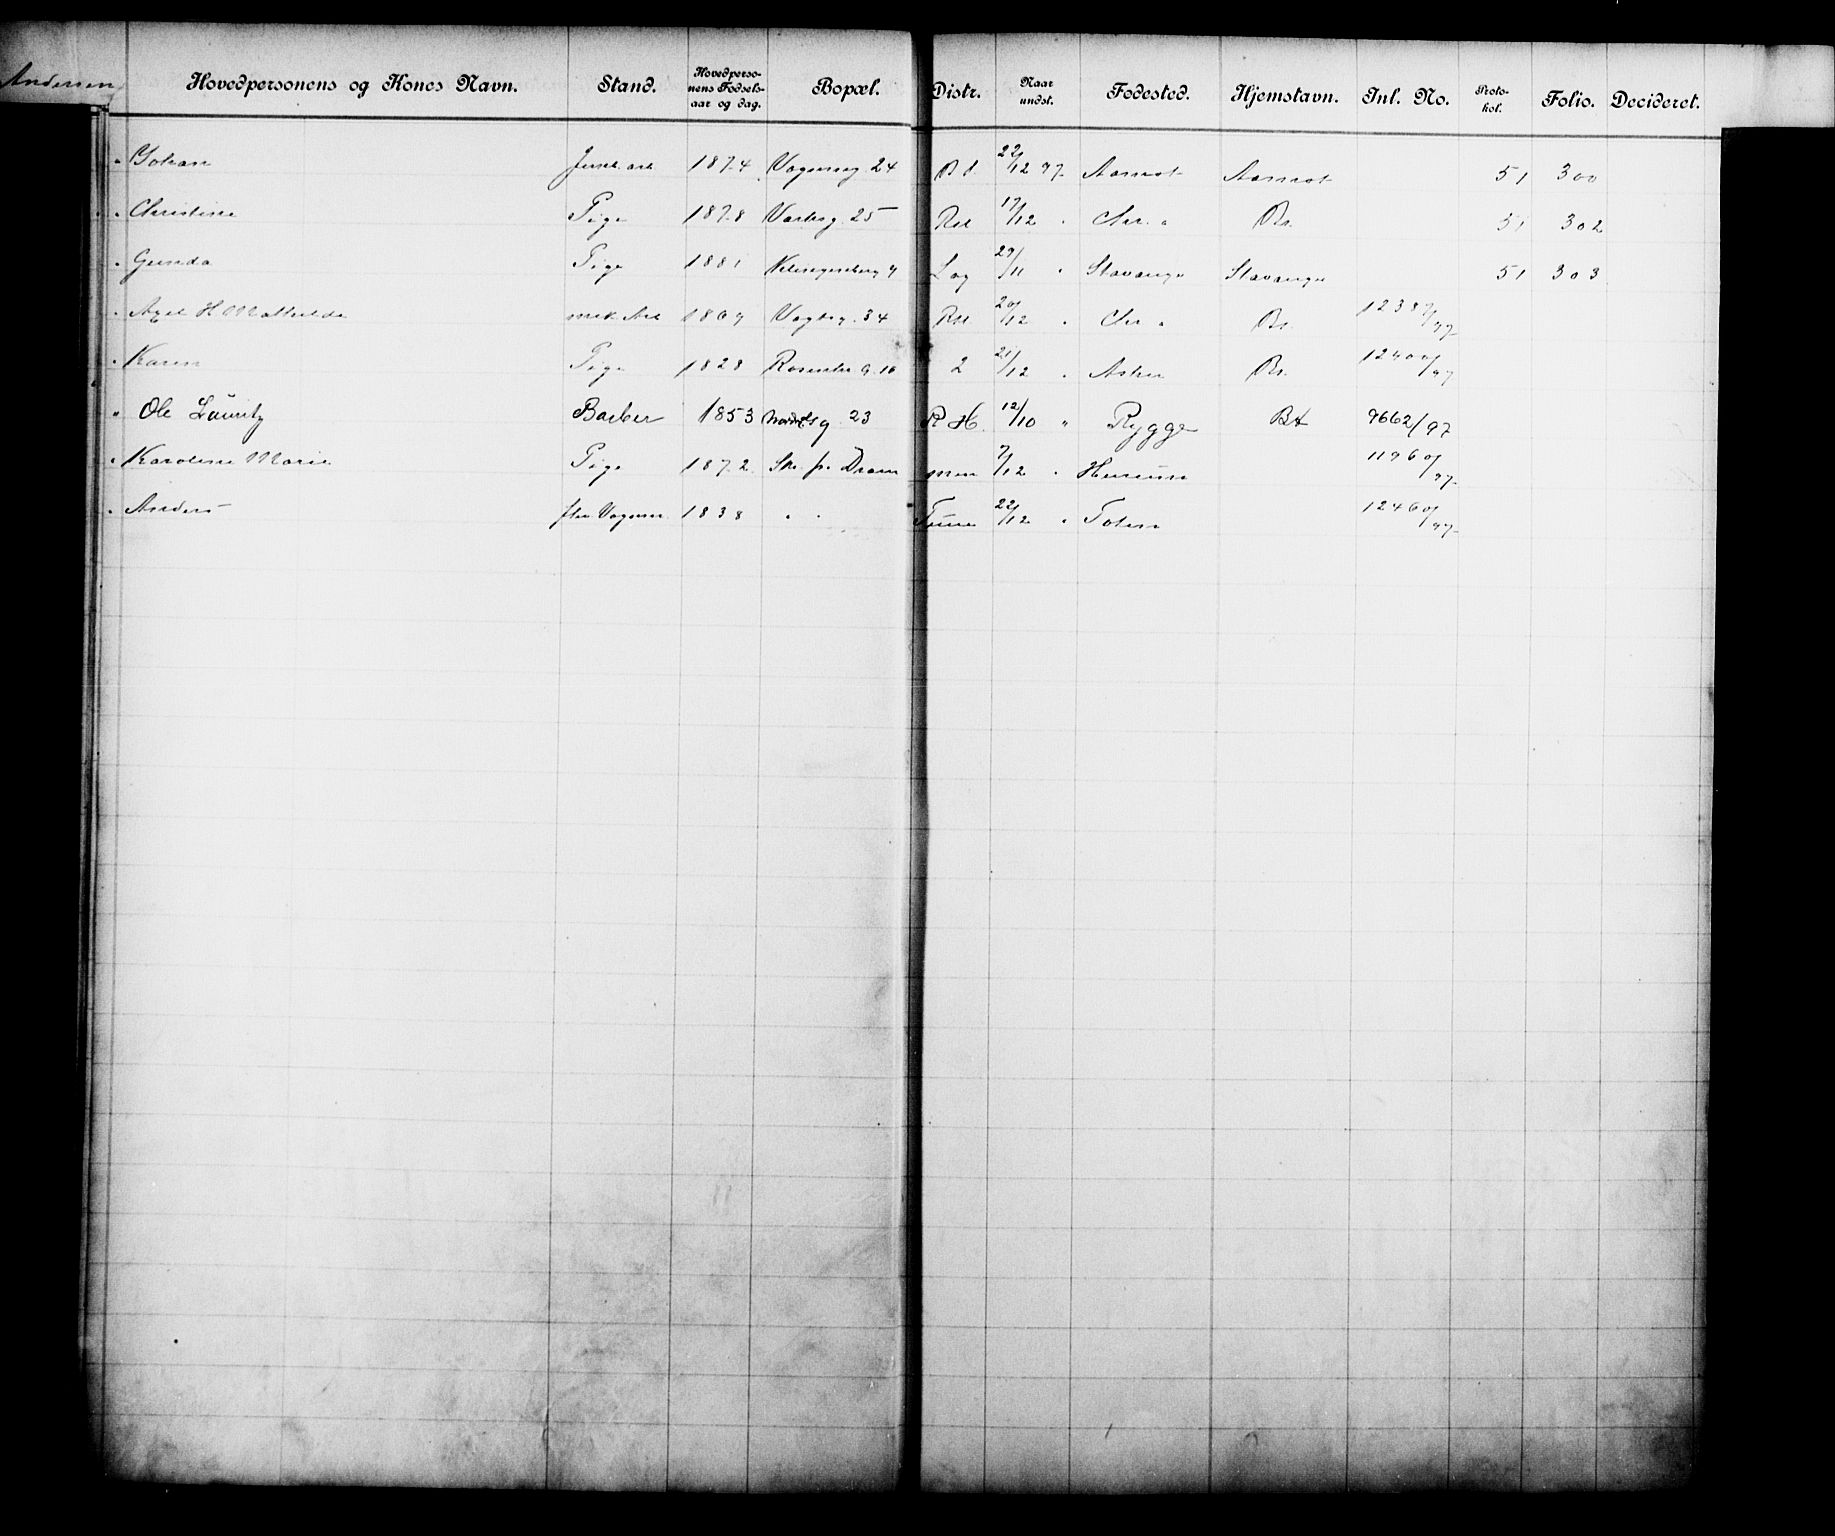 Andersen
Hovedpersonens og Kones Navn. Stand. Hovedpersonens Fødselsaar og dag. Bopæl. Distr. Naar undst. Fødested. Hjemstavn. Inl. No. Protokol. Folio. Decideret.
" Johan 1874 24 22/12 97 Aamot Aamot 51 300
" Christine Pige 1878 25 17/12 " Chr. a 51 302
" Gunda Pige 1881 29/11 " Stavanger Stavanger 51 303
" Axel H Mathilde mek Arb 1869 34 20/12 " Chr. a 1238 /97
" Karen Pige 1828 Rosenkr g. 16 2 21/12 " Asker 12400/97
" Ole Lauritz Barber 1853 23 R H. 12/10 " Rygge 9662/97
" Karoline Marie Pige 1872 Dram men 7/12 " Hurum 11960/97
" Anders 1838 " " Tune 22/12 " Toten 12460/97